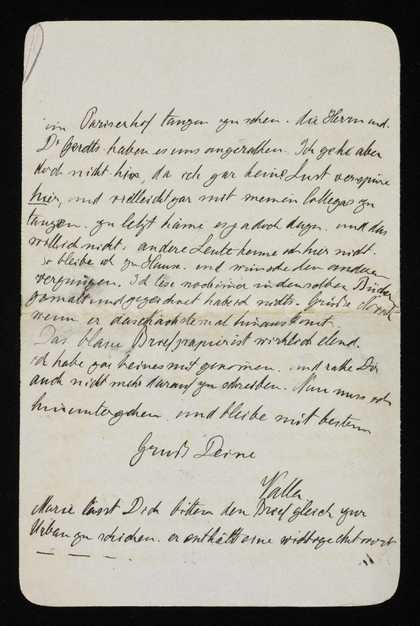 im Pariserhof tanzen zu sehen. die Herrn und.
Dr Gerdts haben es uns angerathen. Ich gehe aber
doch nicht hin, da ich gar keine Lust verspüre
hier, und vielleicht gar mit meinem Collegas zu
tanzen. zu letzt käme es ja doch dazu. und das
will ich nicht. andere Leute kenne ich hier nicht.
so bleibe ich zu Hause. und wünsche den anderen
vergnügen. Ich lese noch immer in denselben Bücher
gemalt und gezeichnet habe ich nichts. Grüsse
wenn er das nächste mal hinaus komt.
Das blaue Briefpapier ist wirklich elend.
ich habe gar keines mit genomen. und rathe Dir
auch nicht mehr darauf zu schreiben. Nun muss ich
hinuntergehen. und bleibe mit bestem
Gruss Deine
Wally
Marie lässt Dich bitten den Brief gleich zur
Urban zu schicken. er enthält eine